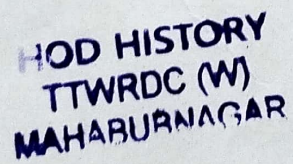 HOD HISTORY
TTWRDC (W)
MAHABUBNAGAR